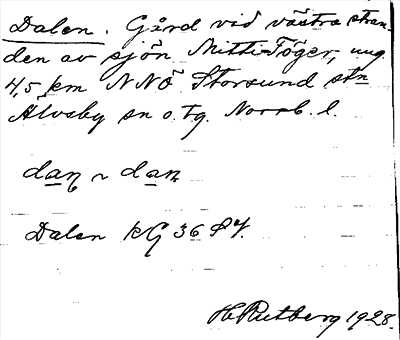 Dalen. Gård vid västra stran-
den av sjön Mitti-Töger, ung.
4,5 km NNÖ Storsund stn
Älvsby sn o. tg. Norrb. l.
dan ~ dan
Dalen kG 36 S4.
H Rutberg 1928.